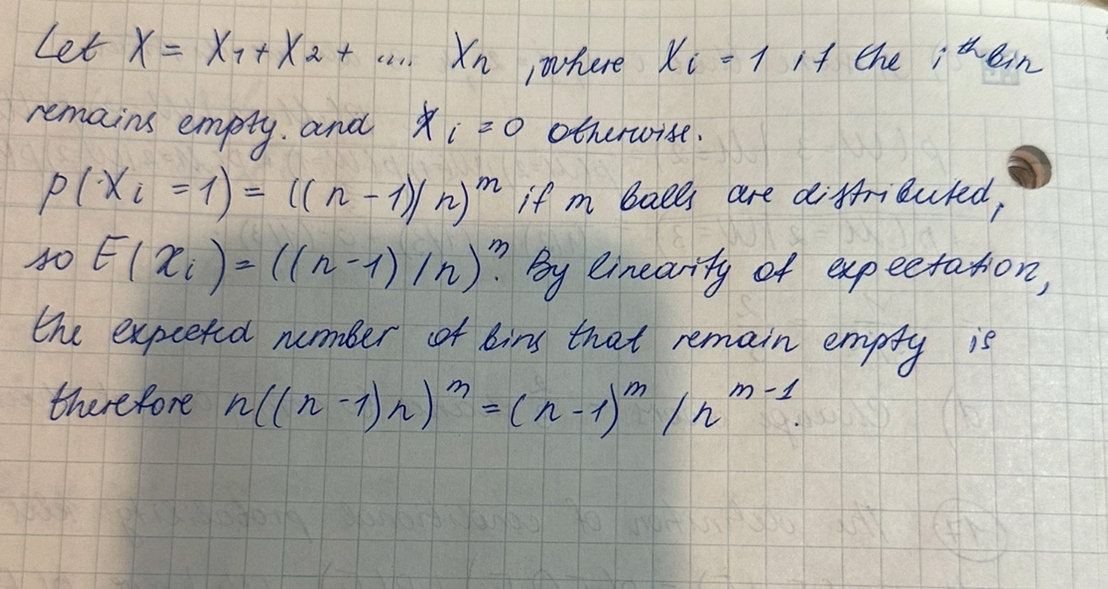 Let X = X1 + X2 + .... Xn , where Xi = 1 if the i th bin
remains empty. and Xi = 0 otherwise.
p(Xi = 1) = ((n - 1)/n)^m if m balls are distributed,
so E(Xi) = ((n-1)/n)^m. By linearity of expectation,
the expected number of bins that remain empty is
therefore n((n-1)n)^m = (n-1)^m / n^m-1.